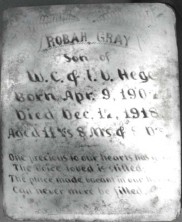 ROBAH GRAY
Son of
W. C. & I. U. Hege
Born Apr. 9, 190
Died Dec. 12, 1918
Aged 11 Ys 8 Ms. &
One precious to our hearts has
The voice we loved is stilled
The place made vacant in our
Can never more be filled.